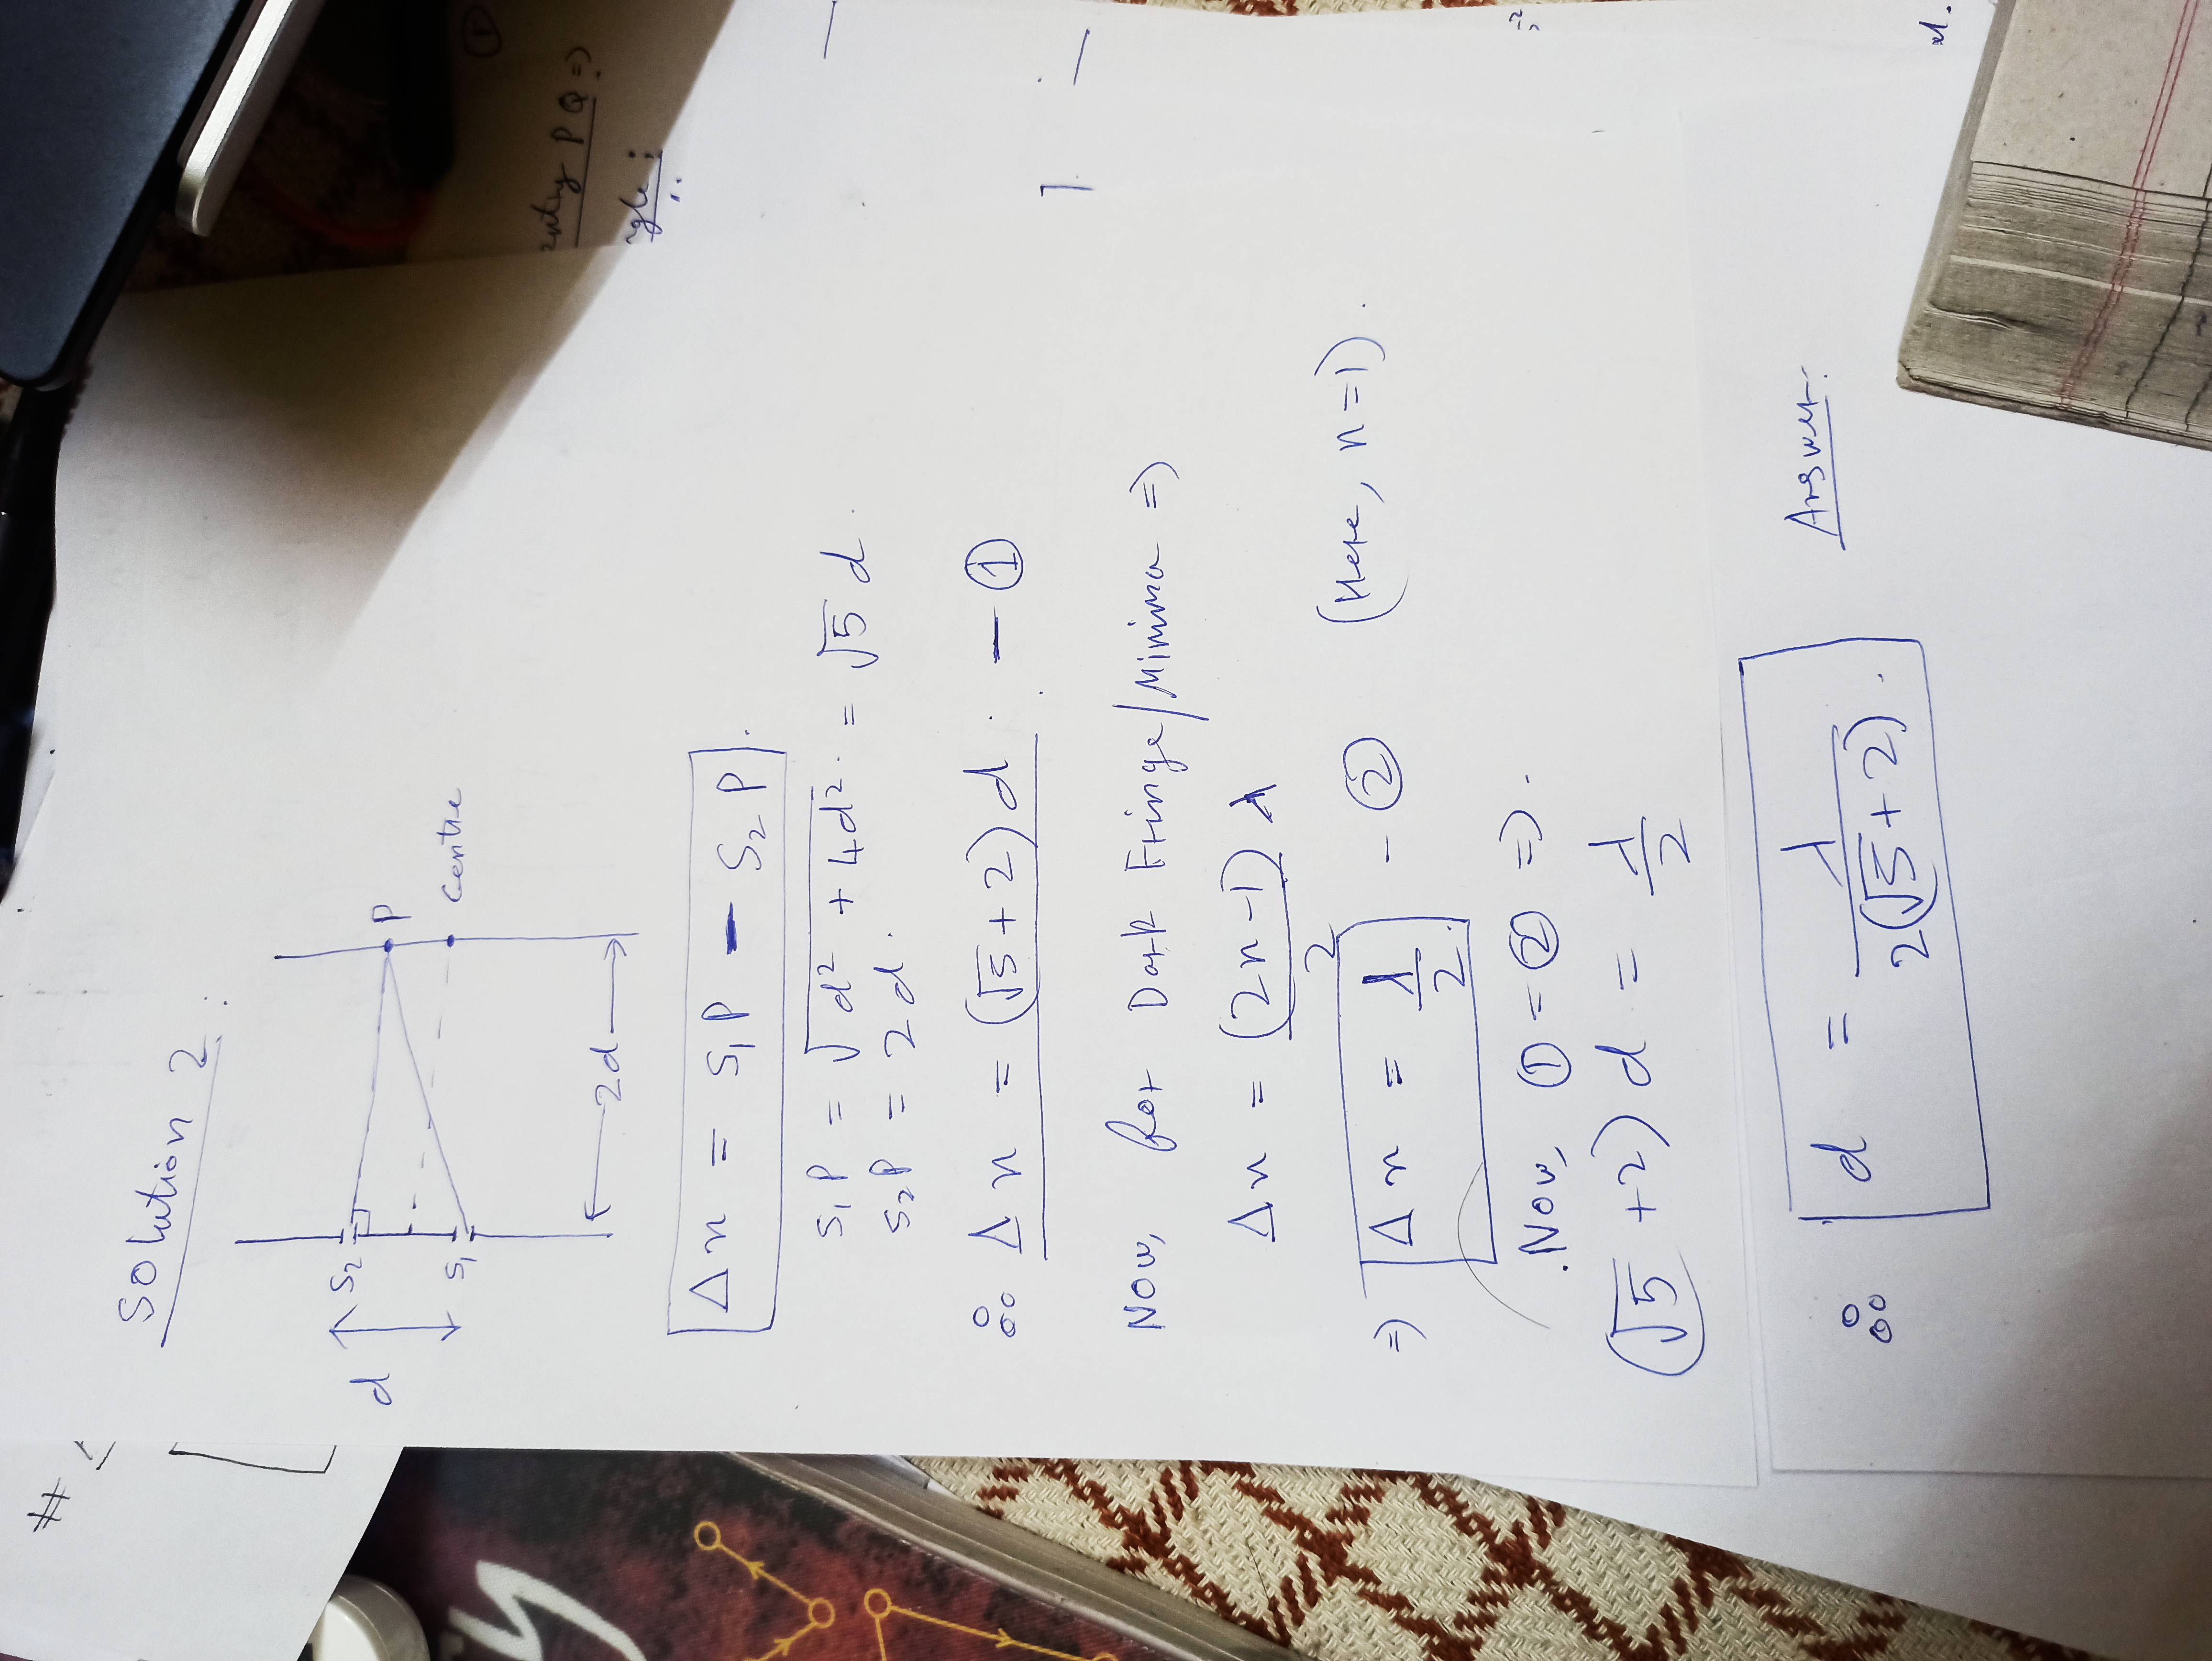 Solution 2 :
d
S₂
S₁
P
Centre
2d
Δx = S₁P - S₂P.
S₁P = √(d² + 4d²) = √5 d.
S₂P = 2d.
∴ Δx = (√5 + 2)d. - ①
Now, for Dark Fringe/Minima ⇒
Δx = (2n-1)λ/2
⇒ Δx = λ/2. - ② (Here, n=1).
Now, ① = ② ⇒.
(√5 + 2) d = λ/2
∴ d = λ/2(√5+2). Answer.
#
PQ ⇒
①